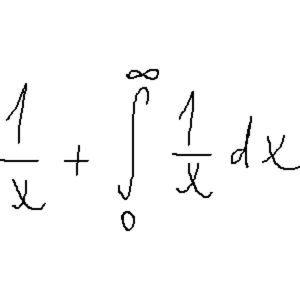 $\frac{1}{x} + \int_{0}^{\infty} \frac{1}{x} dx$